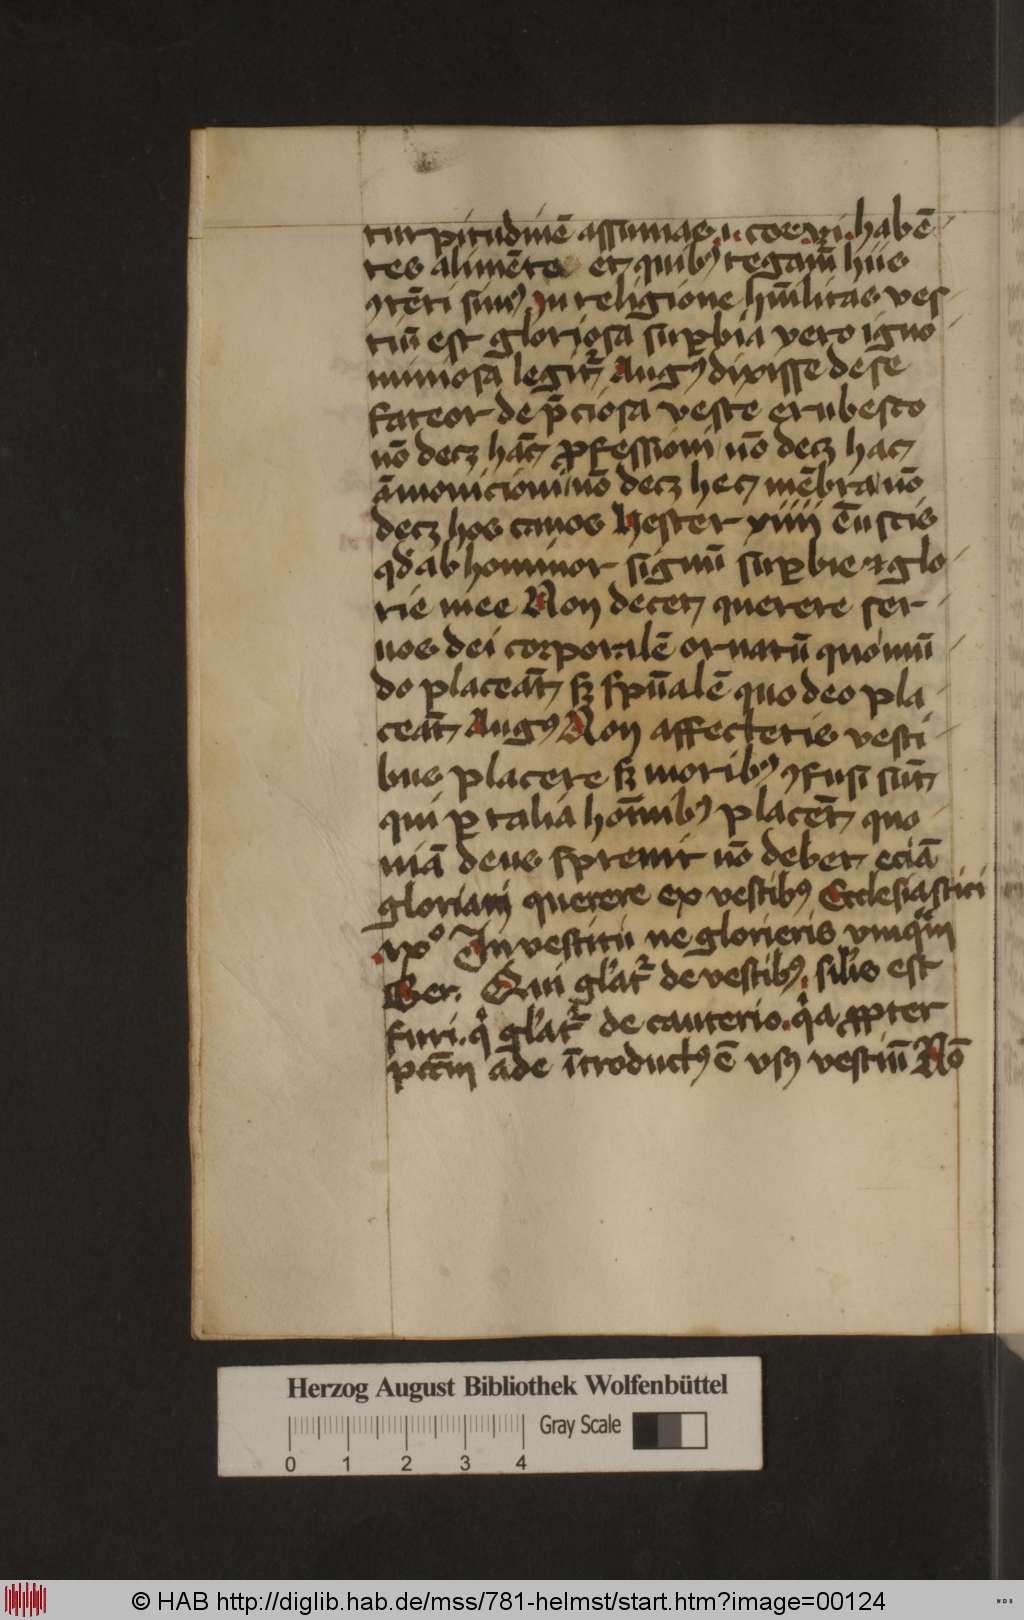 turpitudinē assumas .i. coe .vi. habē
tes alimēta et quibꝰ tegam̄ hiis
ꝯtēti simꝰ In religione hūilitas ves
tiū est gloriosa suꝑbia vero igno
miniosa legitᷣ Augꝰ dixisse de se
fateor de p̄ciosa veste erubesco
nō decꝫ hāc ꝓfessioni nō decꝫ hac
āmonicioni nō decꝫ hec mēbra nō
decꝫ hos canos Hester xiiii tu scis
qd abhominor signū suꝑbie et glo
rie mee Non decet querere ser
uos dei corporalē ornatū quo mū
do placeāt sꝫ spūalē quo deo pla
ceāt Augꝰ Non affectetis vesti
bus placere sꝫ moribꝰ ꝯfusi sūt
qui ꝑ talia hoībꝰ placēt quo
niā deus spreuit nō debet eciā
gloriam querere ex vestibꝰ Ecclesiastici
.ixº In vestitu ne glorieris vnqᷓm
Ber. Qui gl'atᷣ de vestibꝰ. sil'is est
furi. qͥ gl'atᷣ de cauterio. qͥa ꝓpter
pctm̄ ade ītroductꝰ ē vsꝰ vestiū Nō
Herzog August Bibliothek Wolfenbüttel
Gray Scale
0 1 2 3 4
© HAB http://diglib.hab.de/mss/781-helmst/start.htm?image=00124